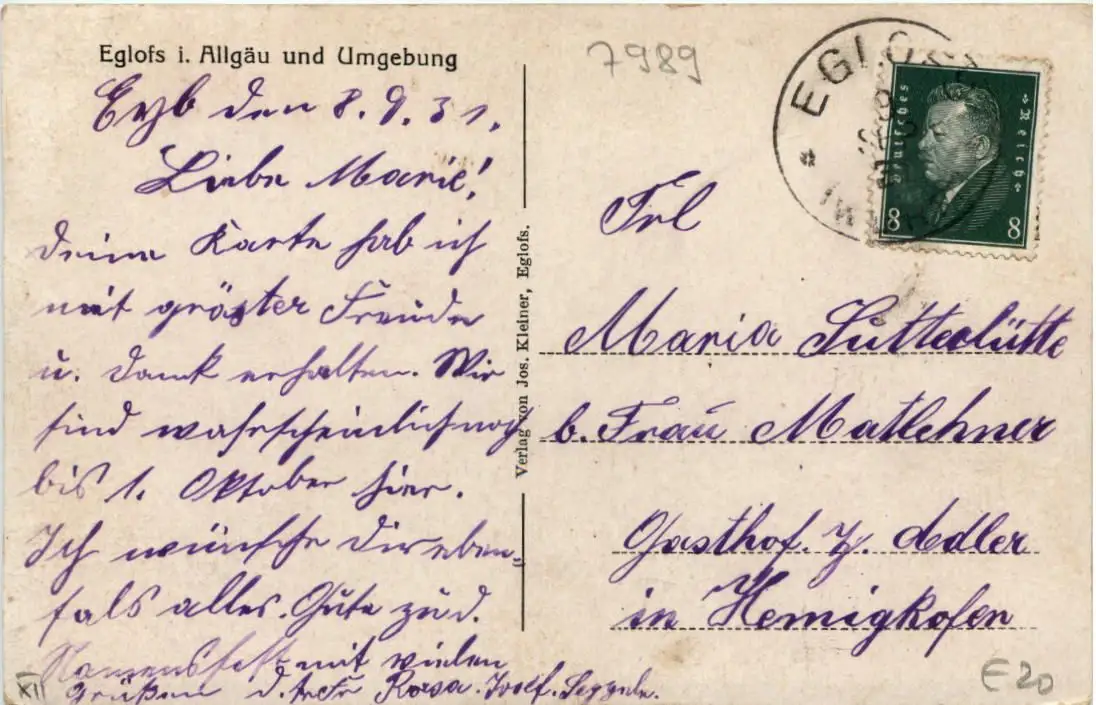 Eglofs i. Allgäu und Umgebung
7989
EGLOFS
Deutsches Reich
8 8
den 8.9.31.
Liebe Marie!
Deine Karte hab ich
mit gröster Freude
u. Dank erhalten. Wir
sind wahrscheinlich noch
bis 1. Oktober hier.
Ich wünsche Dir eben-
fals alles Gute zu d.
Namensfest mit vielen
Grüßen Rosa. Josef.
Verlag von Jos. Kleiner, Eglofs.
Frl
Maria Sutterlütte
b. Frau Matlehner
Gasthof z. Adler
in Hemigkofen
XII
E20